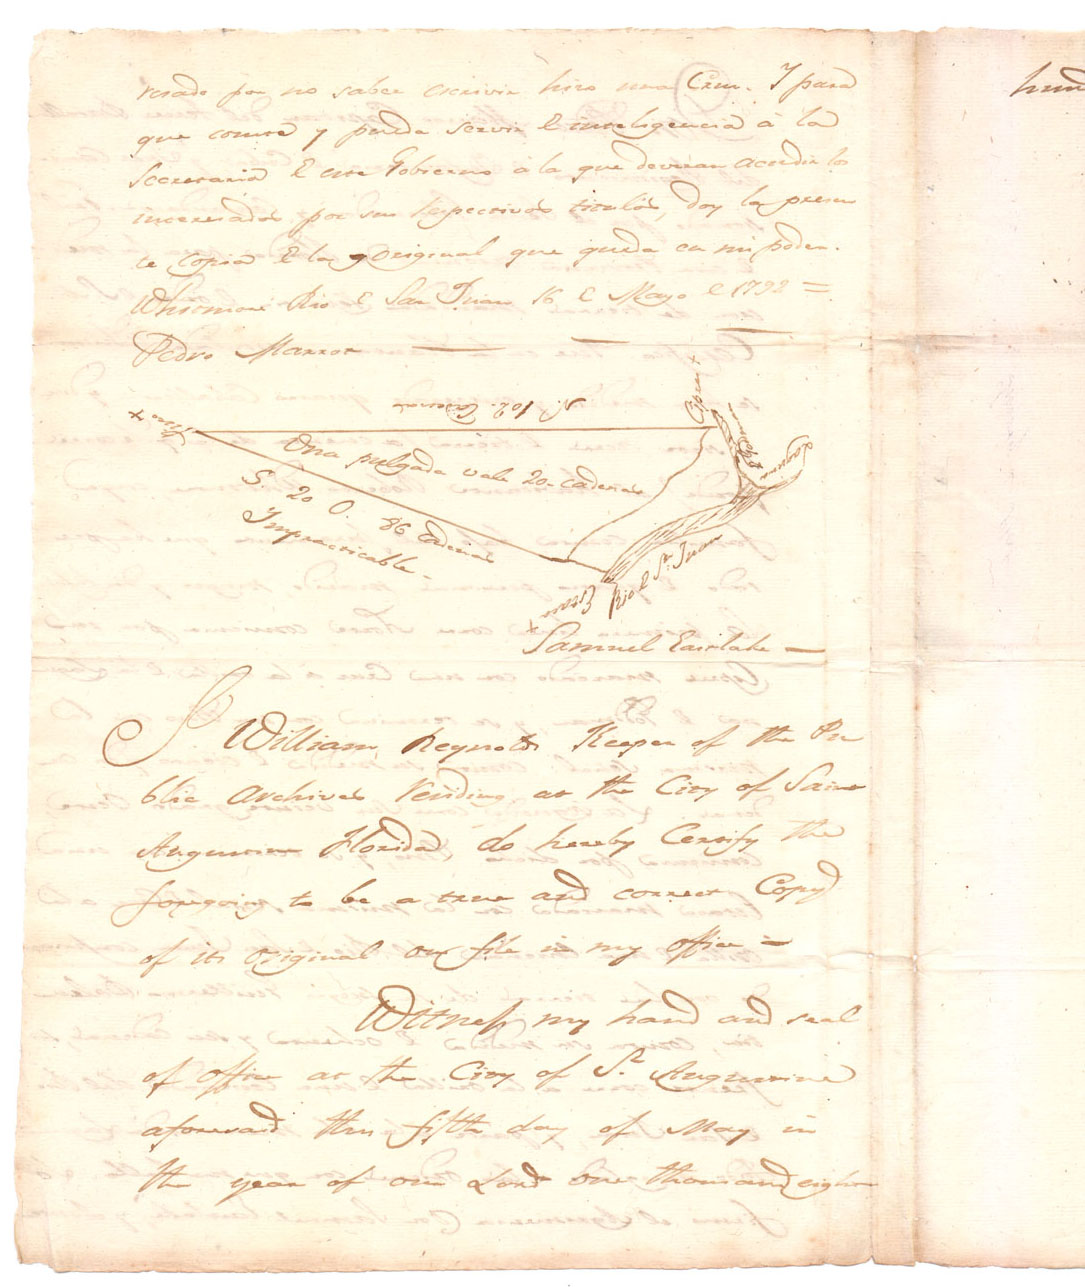 resado por no saber escrivir hizo una Cruz. Y para
que conste y pueda servir de inteligencia à la
Secretaria de este Gobierno à la que deveran acudir los
interesados por sus respectivos titulos, doy la presen
te Copia de la original que queda en mi poder.
Whitmore Rio de San Juan 16 de Mayo de 1792 =
Pedro Marrot
N. 102. Cadenas
Cipres +
Pino +
Una pulgada vale 20. cadenas
S. 20 O. 86 Cadenas
Impracticable.
Rio de Sn. Juan
Samuel Eastlake
I William Reynolds Keeper of the Pu
blic Archives residing at the City of Saint
Augustine Florida, do hereby Certify the
foregoing to be a true and correct Copy
of its original on file in my office =
Witness my hand and seal
of office at the City of St. Augustine
aforesaid this fifth day of May in
the year of our Lord one thousand eight
hund